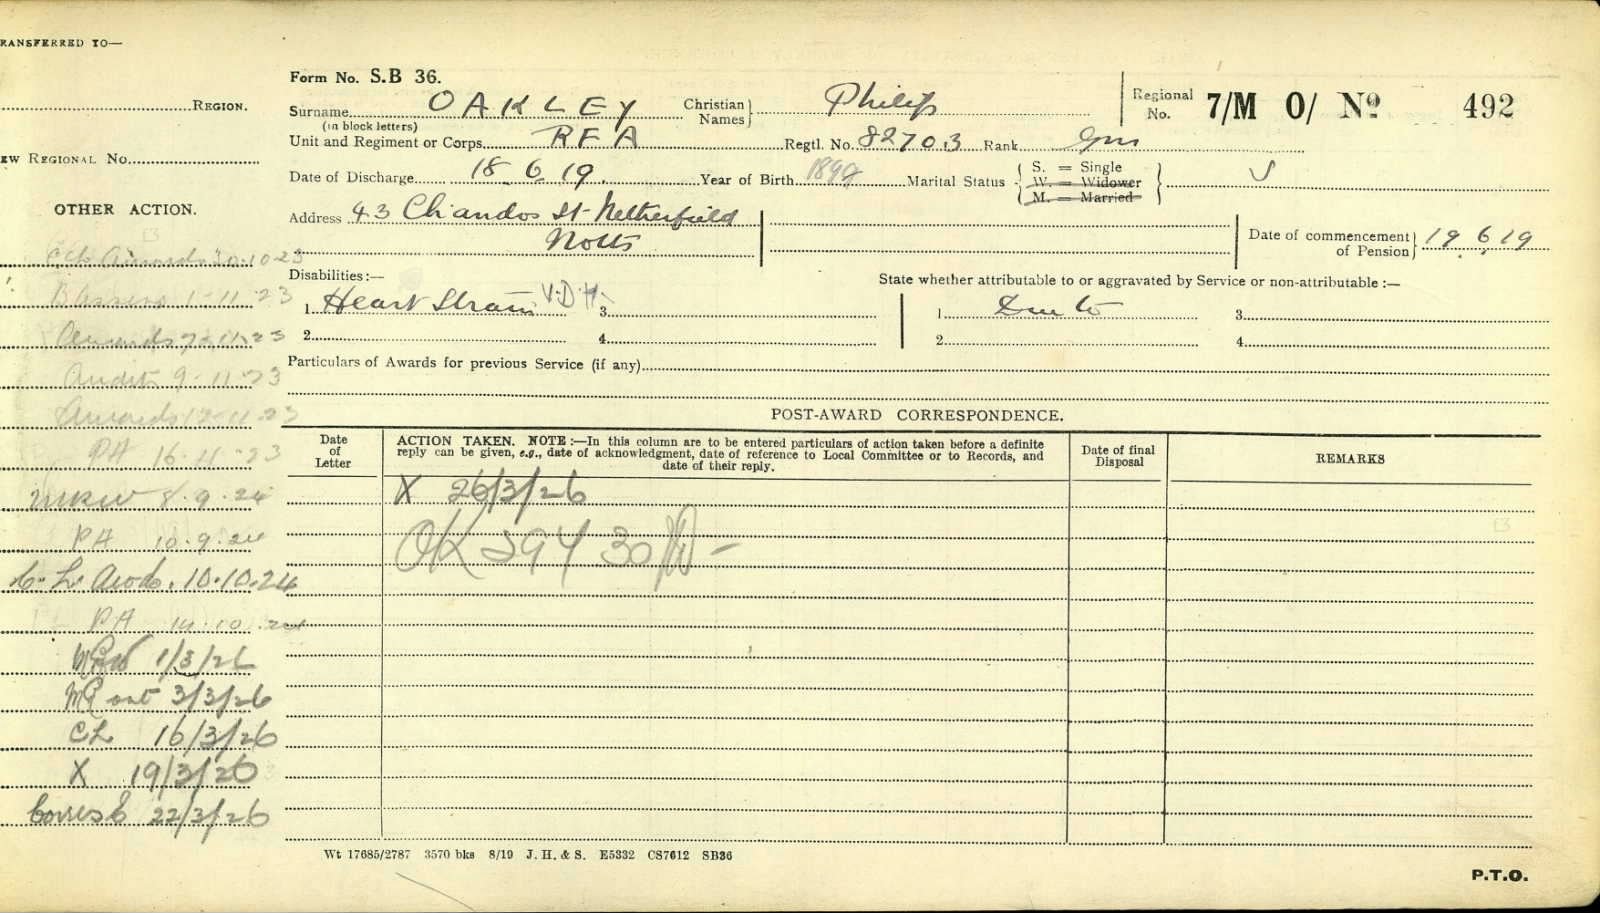 RANSFERRED TO—
Form No. S.B 36.
REGION.
Surname OAKLEY Christian Names Philip Regional No. 7/M O/ No 492
(in block letters)
Unit and Regiment or Corps RFA Regtl. No. 82703 Rank Gnr
EW REGIONAL No.
Date of Discharge 18 6 19. Year of Birth Marital Status S. = Single S
W. = Widower
M. = Married
Address 43 Chandos St Netherfield
Notts
Date of commencement of Pension 19 6 19
OTHER ACTION.
Awards 30.10.23
1-11-23
Awards 7.11.23
Audit 9-11-23
Awards 12-11-23
PA 16-11-23
8.9.24
PA 10.9.24
C. L. Awds. 10.10.24
PA 14.10.24
1/3/26
out 3/3/26
CL 16/3/26
X 19/3/26
22/3/26
Disabilities:—
State whether attributable to or aggravated by Service or non-attributable:—
1. Heart Strain V.D.H. 3. 1. Due to 3.
2. 4. 2. 4.
Particulars of Awards for previous Service (if any)
POST-AWARD CORRESPONDENCE.
Date of Letter
ACTION TAKEN. NOTE:—In this column are to be entered particulars of action taken before a definite
reply can be given, e.g., date of acknowledgment, date of reference to Local Committee or to Records, and
date of their reply.
Date of final Disposal
REMARKS
X 26/3/26
OK 30
Wt 17685/2787 3570 bks 8/19 J. H. & S. E5332 CS7612 SB36
P.T.O.